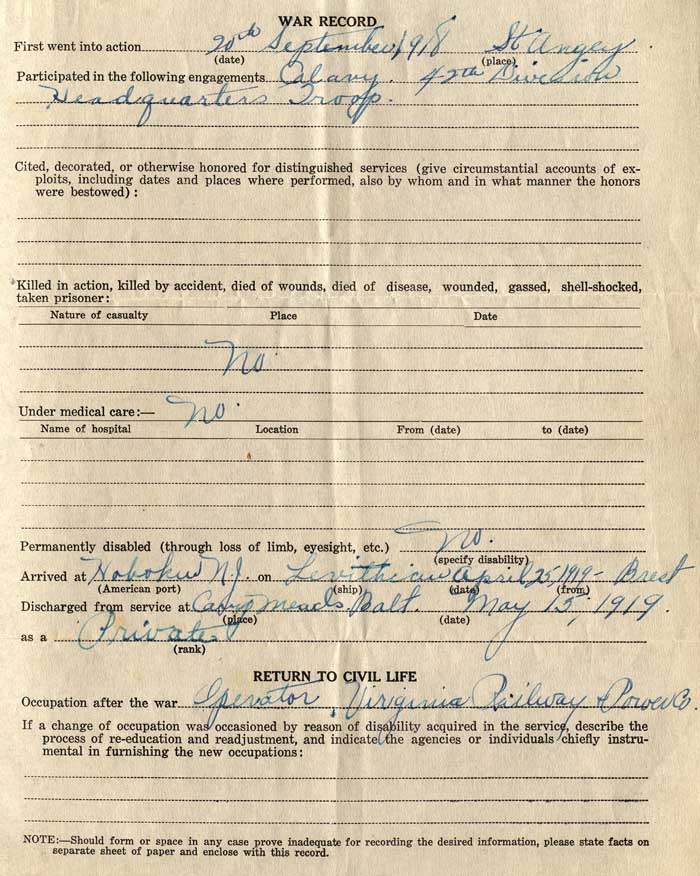 WAR RECORD
First went into action 20th September, 1918 St Angey
(date) (place)
Participated in the following engagements Calavy. 42th Division
Headquarters Troop.
Cited, decorated, or otherwise honored for distinguished services (give circumstantial accounts of ex-
ploits, including dates and places where performed, also by whom and in what manner the honors
were bestowed) :
Killed in action, killed by accident, died of wounds, died of disease, wounded, gassed, shell-shocked,
taken prisoner:
Nature of casualty Place Date
No.
Under medical care:— No.
Name of hospital Location From (date) to (date)
Permanently disabled (through loss of limb, eyesight, etc.) No.
(specify disability)
Arrived at Hoboken N.J. on April 25, 1919 - Brest
(American port) (ship) (date) (from)
Discharged from service at Camp Meade, Balt. May 15, 1919.
(place) (date)
as a Private
(rank)
RETURN TO CIVIL LIFE
Occupation after the war Operator, Virginia Railway & Power Co.
If a change of occupation was occasioned by reason of disability acquired in the service, describe the
process of re-education and readjustment, and indicate the agencies or individuals chiefly instru-
mental in furnishing the new occupations:
NOTE:—Should form or space in any case prove inadequate for recording the desired information, please state facts on
separate sheet of paper and enclose with this record.